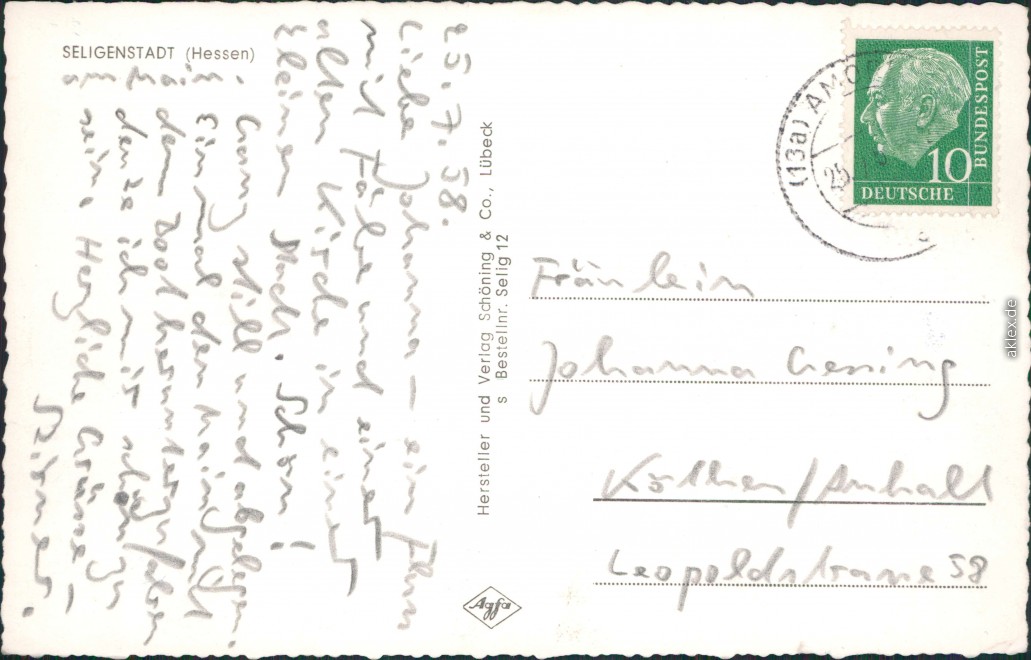 SELIGENSTADT (Hessen)
25.7.58.
Liebe Johanna – ein Fluss
mit Fähre und einer
alten Kirche in einer
kleinen Stadt. Schön!
Ganz still und abgelegen.
Einmal den Main mit
dem Boot herunterfahren
denke ich mir schön zu
sein. Herzliche Grüsse –
Hersteller und Verlag Schöning & Co., Lübeck
s Bestellnr. Selig 12
Agfa
(13a) AMO
25.
10
DEUTSCHE
BUNDESPOST
Fräulein
Johanna
Köthen/Anhalt
Leopoldstrasse 58
aklex.de